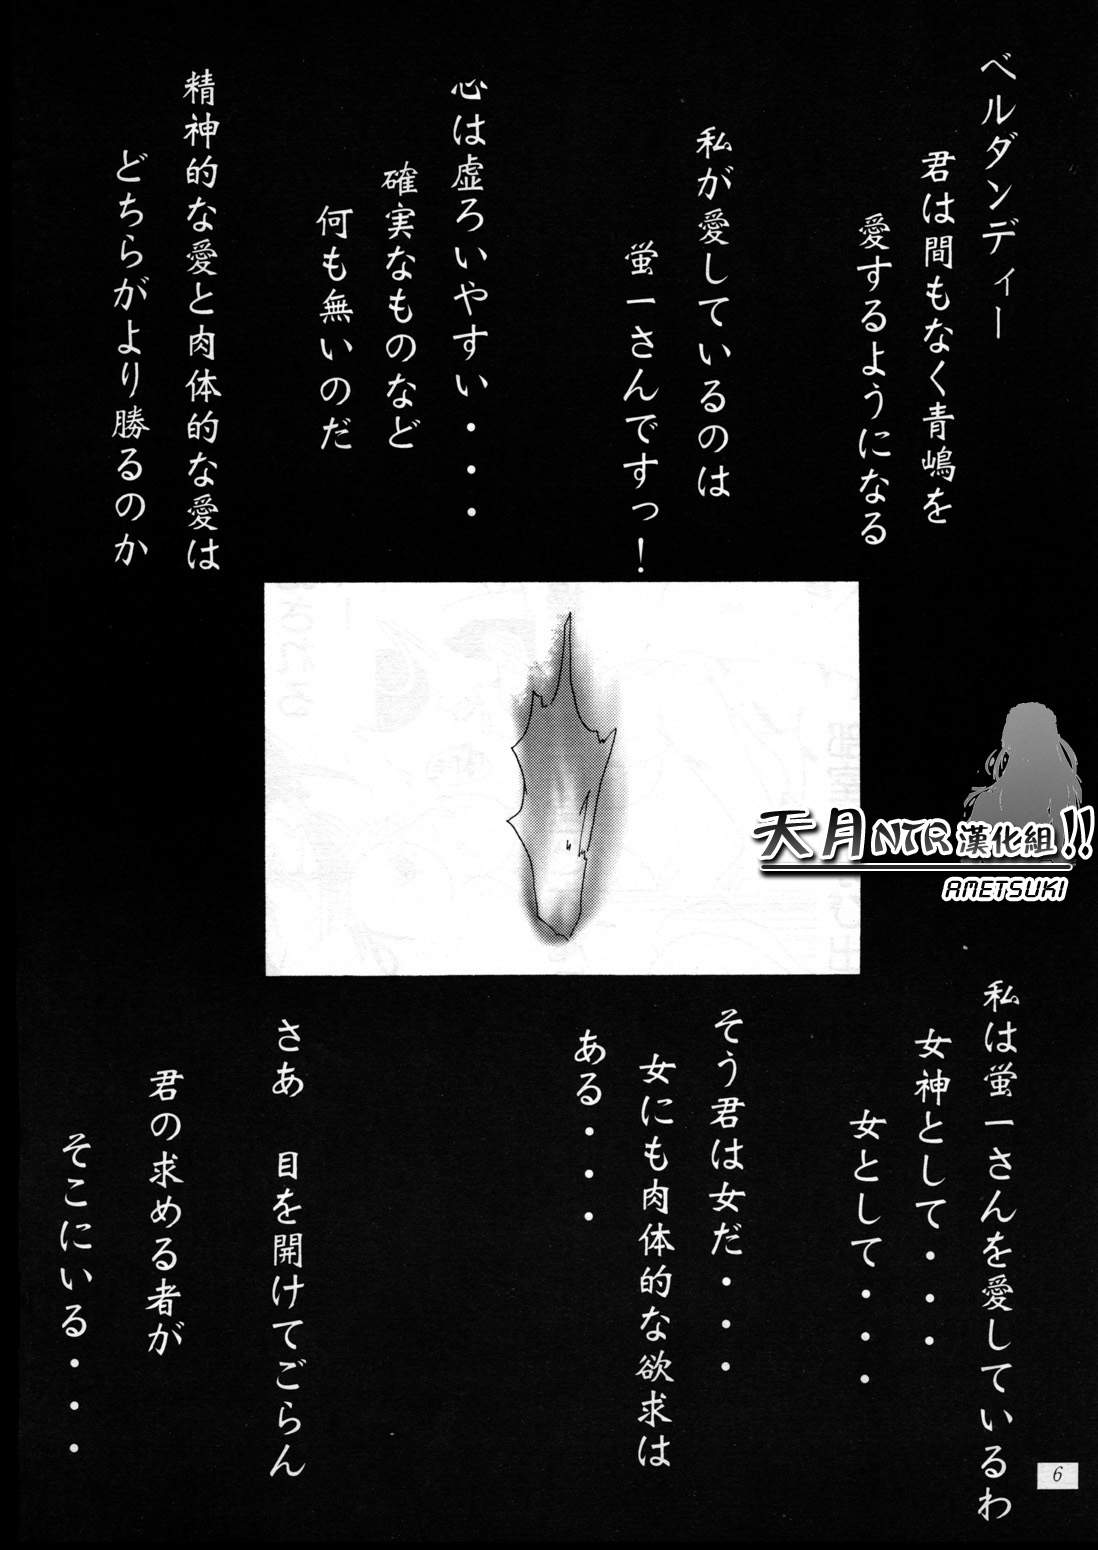 ベルダンディー
君は間もなく青嶋を
愛するようになる
私が愛しているのは
蛍一さんですっ!
心は虚ろいやすい・・・・
確実なものなど
何も無いのだ
精神的な愛と肉体的な愛は
どちらがより勝るのか
天月NTR漢化組!!
AMETSUKI
私は蛍一さんを愛しているわ
女神として・・・・
女として・・・・
そう君は女だ・・・・
女にも肉体的な欲求は
ある・・・・
さあ 目を開けてごらん
君の求める者が
そこにいる・・・・
6